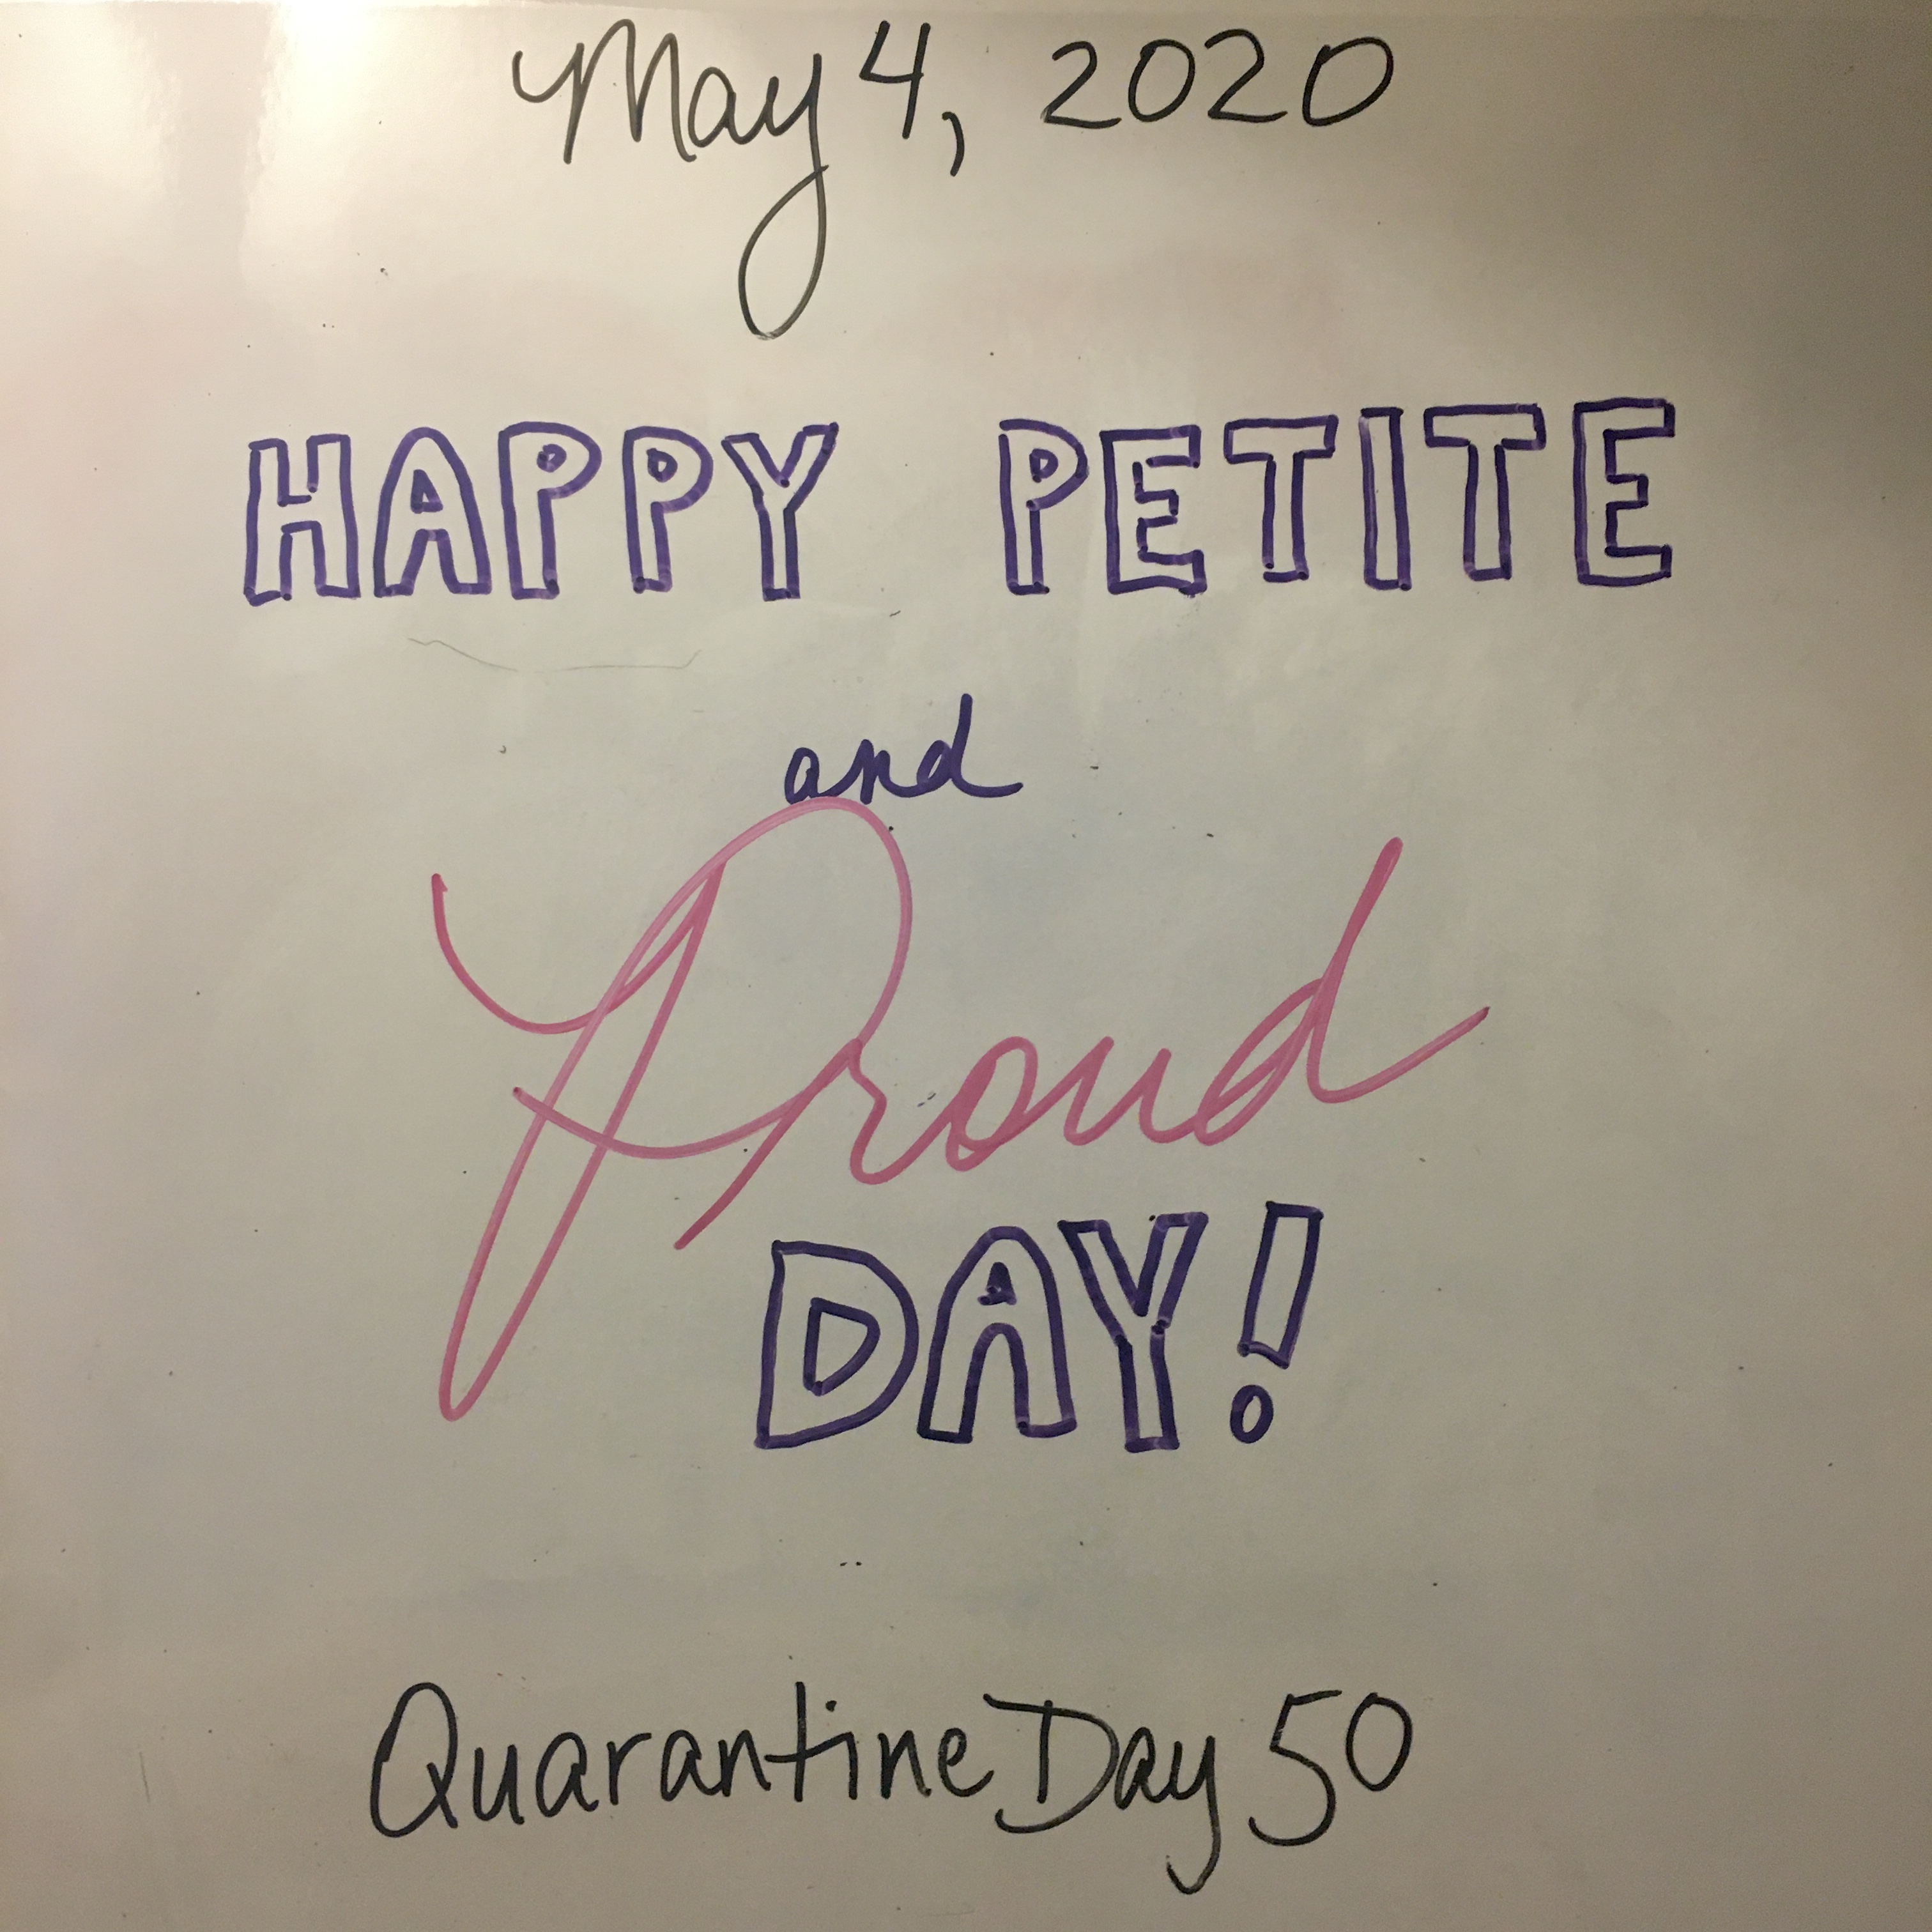 May 4, 2020
HAPPY PETITE
and
Proud
DAY!
Quarantine Day 50